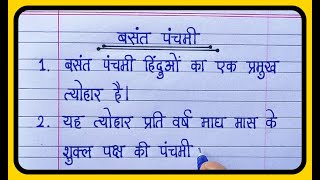 बसंत पंचमी
1. बसंत पंचमी हिंदुओं का एक प्रमुख
त्योहार है।
2. यह त्योहार प्रति वर्ष माघ मास के
शुक्ल पक्ष की पंचमी